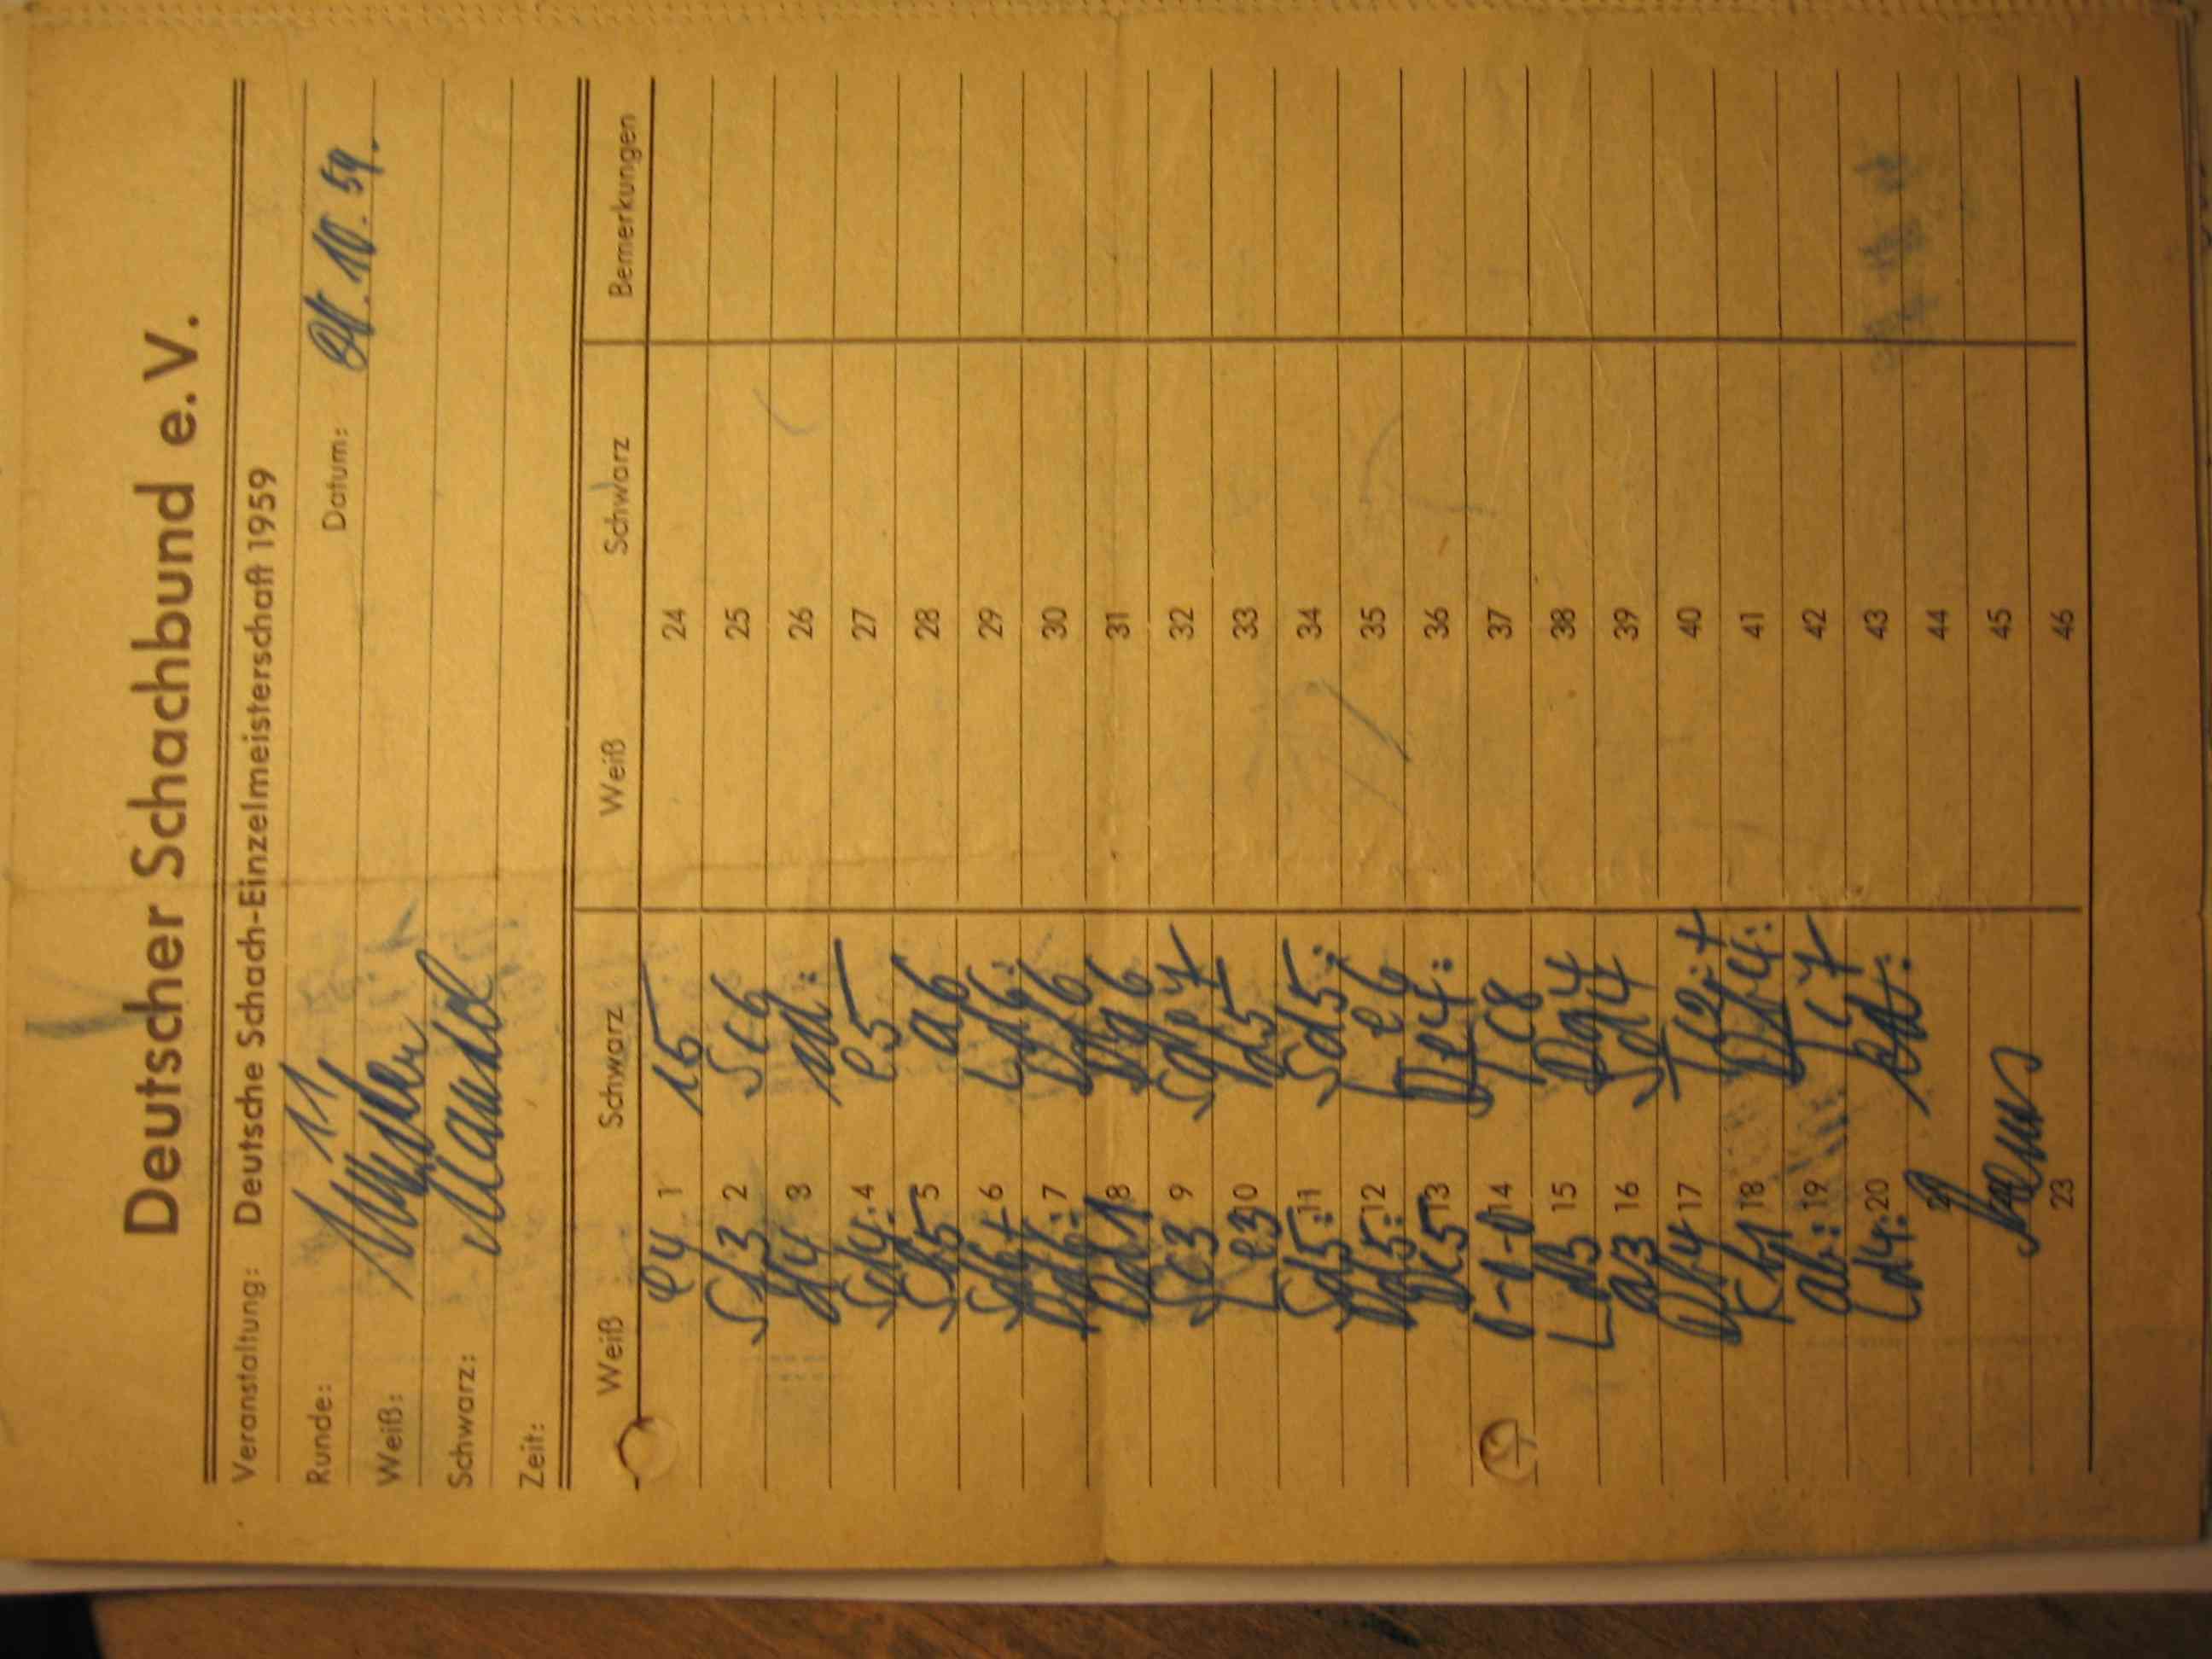 Deutscher Schachbund e.V.
Veranstaltung: Deutsche Schach-Einzelmeisterschaft 1959
Runde: 11 Datum:
Weiß:
Schwarz:
Zeit:
Weiß Schwarz Weiß Schwarz Bemerkungen
e4 1 c5 24
Sf3 2 Sc6 25
d4 3 cd: 26
Sd4: 4 e5 27
Sb5 5 a6 28
Sd6+ 6 Ld6: 29
Dd6: 7 Df6 30
Dd1 8 Dg6 31
Sc3 9 Sge7 32
Le3 10 d5 33
Sd5: 11 Sd5: 34
Dd5: 12 Le6 35
Dc5 13 De4: 36
0-0-0 14 Tc8 37
Ld3 15 Dg4 38
a3 16 Sd4 39
Db4 17 Tc2:+ 40
Kb1 18 Db4: 41
ab: 19 Tc7 42
Ld4: 20 ed: 43
44
45
23 46